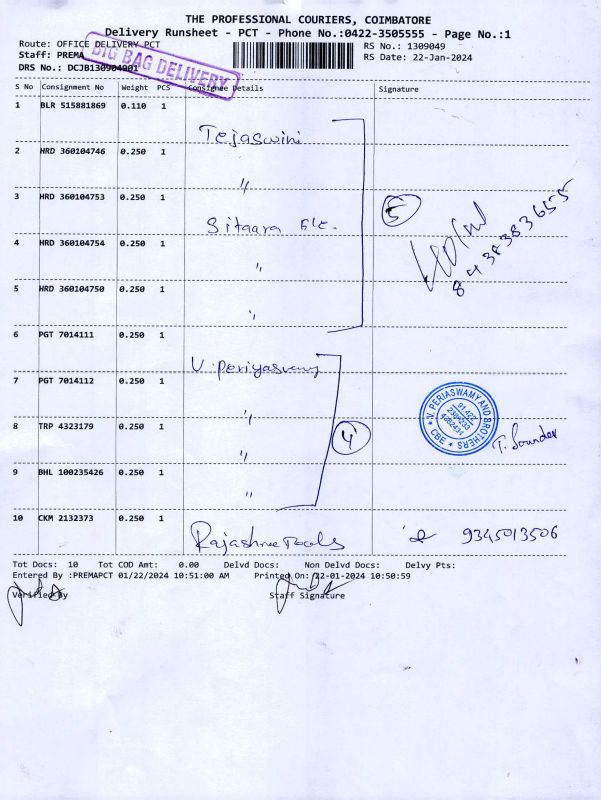 THE PROFESSIONAL COURIERS, COIMBATORE
Delivery Runsheet - PCT - Phone No.:0422-3505555 - Page No.:1
Route: OFFICE DELIVERY PCT
RS No.: 1309049
Staff: PREMA
RS Date: 22-Jan-2024
DRS No.: DCJB130904901
BIG BAG DELIVERY
S No Consignment No Weight PCS Consignee Details Signature
1 BLR 515881869 0.110 1 Tejaswini
2 HRD 360104746 0.250 1 〃
3 HRD 360104753 0.250 1 Sitaara
5
8438383655
4 HRD 360104754 0.250 1 〃
5 HRD 360104750 0.250 1 〃
6 PGT 7014111 0.250 1 V. Periyasvamy
7 PGT 7014112 0.250 1 〃
4
V. PERIASWAMY AND BROTHERS
CBE
T. Sounder
8 TRP 4323179 0.250 1 〃
9 BHL 100235426 0.250 1 〃
10 CKM 2132373 0.250 1 Rajashree Tools 9345013506
Tot Docs: 10 Tot COD Amt: 0.00 Delvd Docs: Non Delvd Docs: Delvy Pts:
Entered By :PREMAPCT 01/22/2024 10:51:00 AM Printed On: 22-01-2024 10:50:59
Verified By Staff Signature